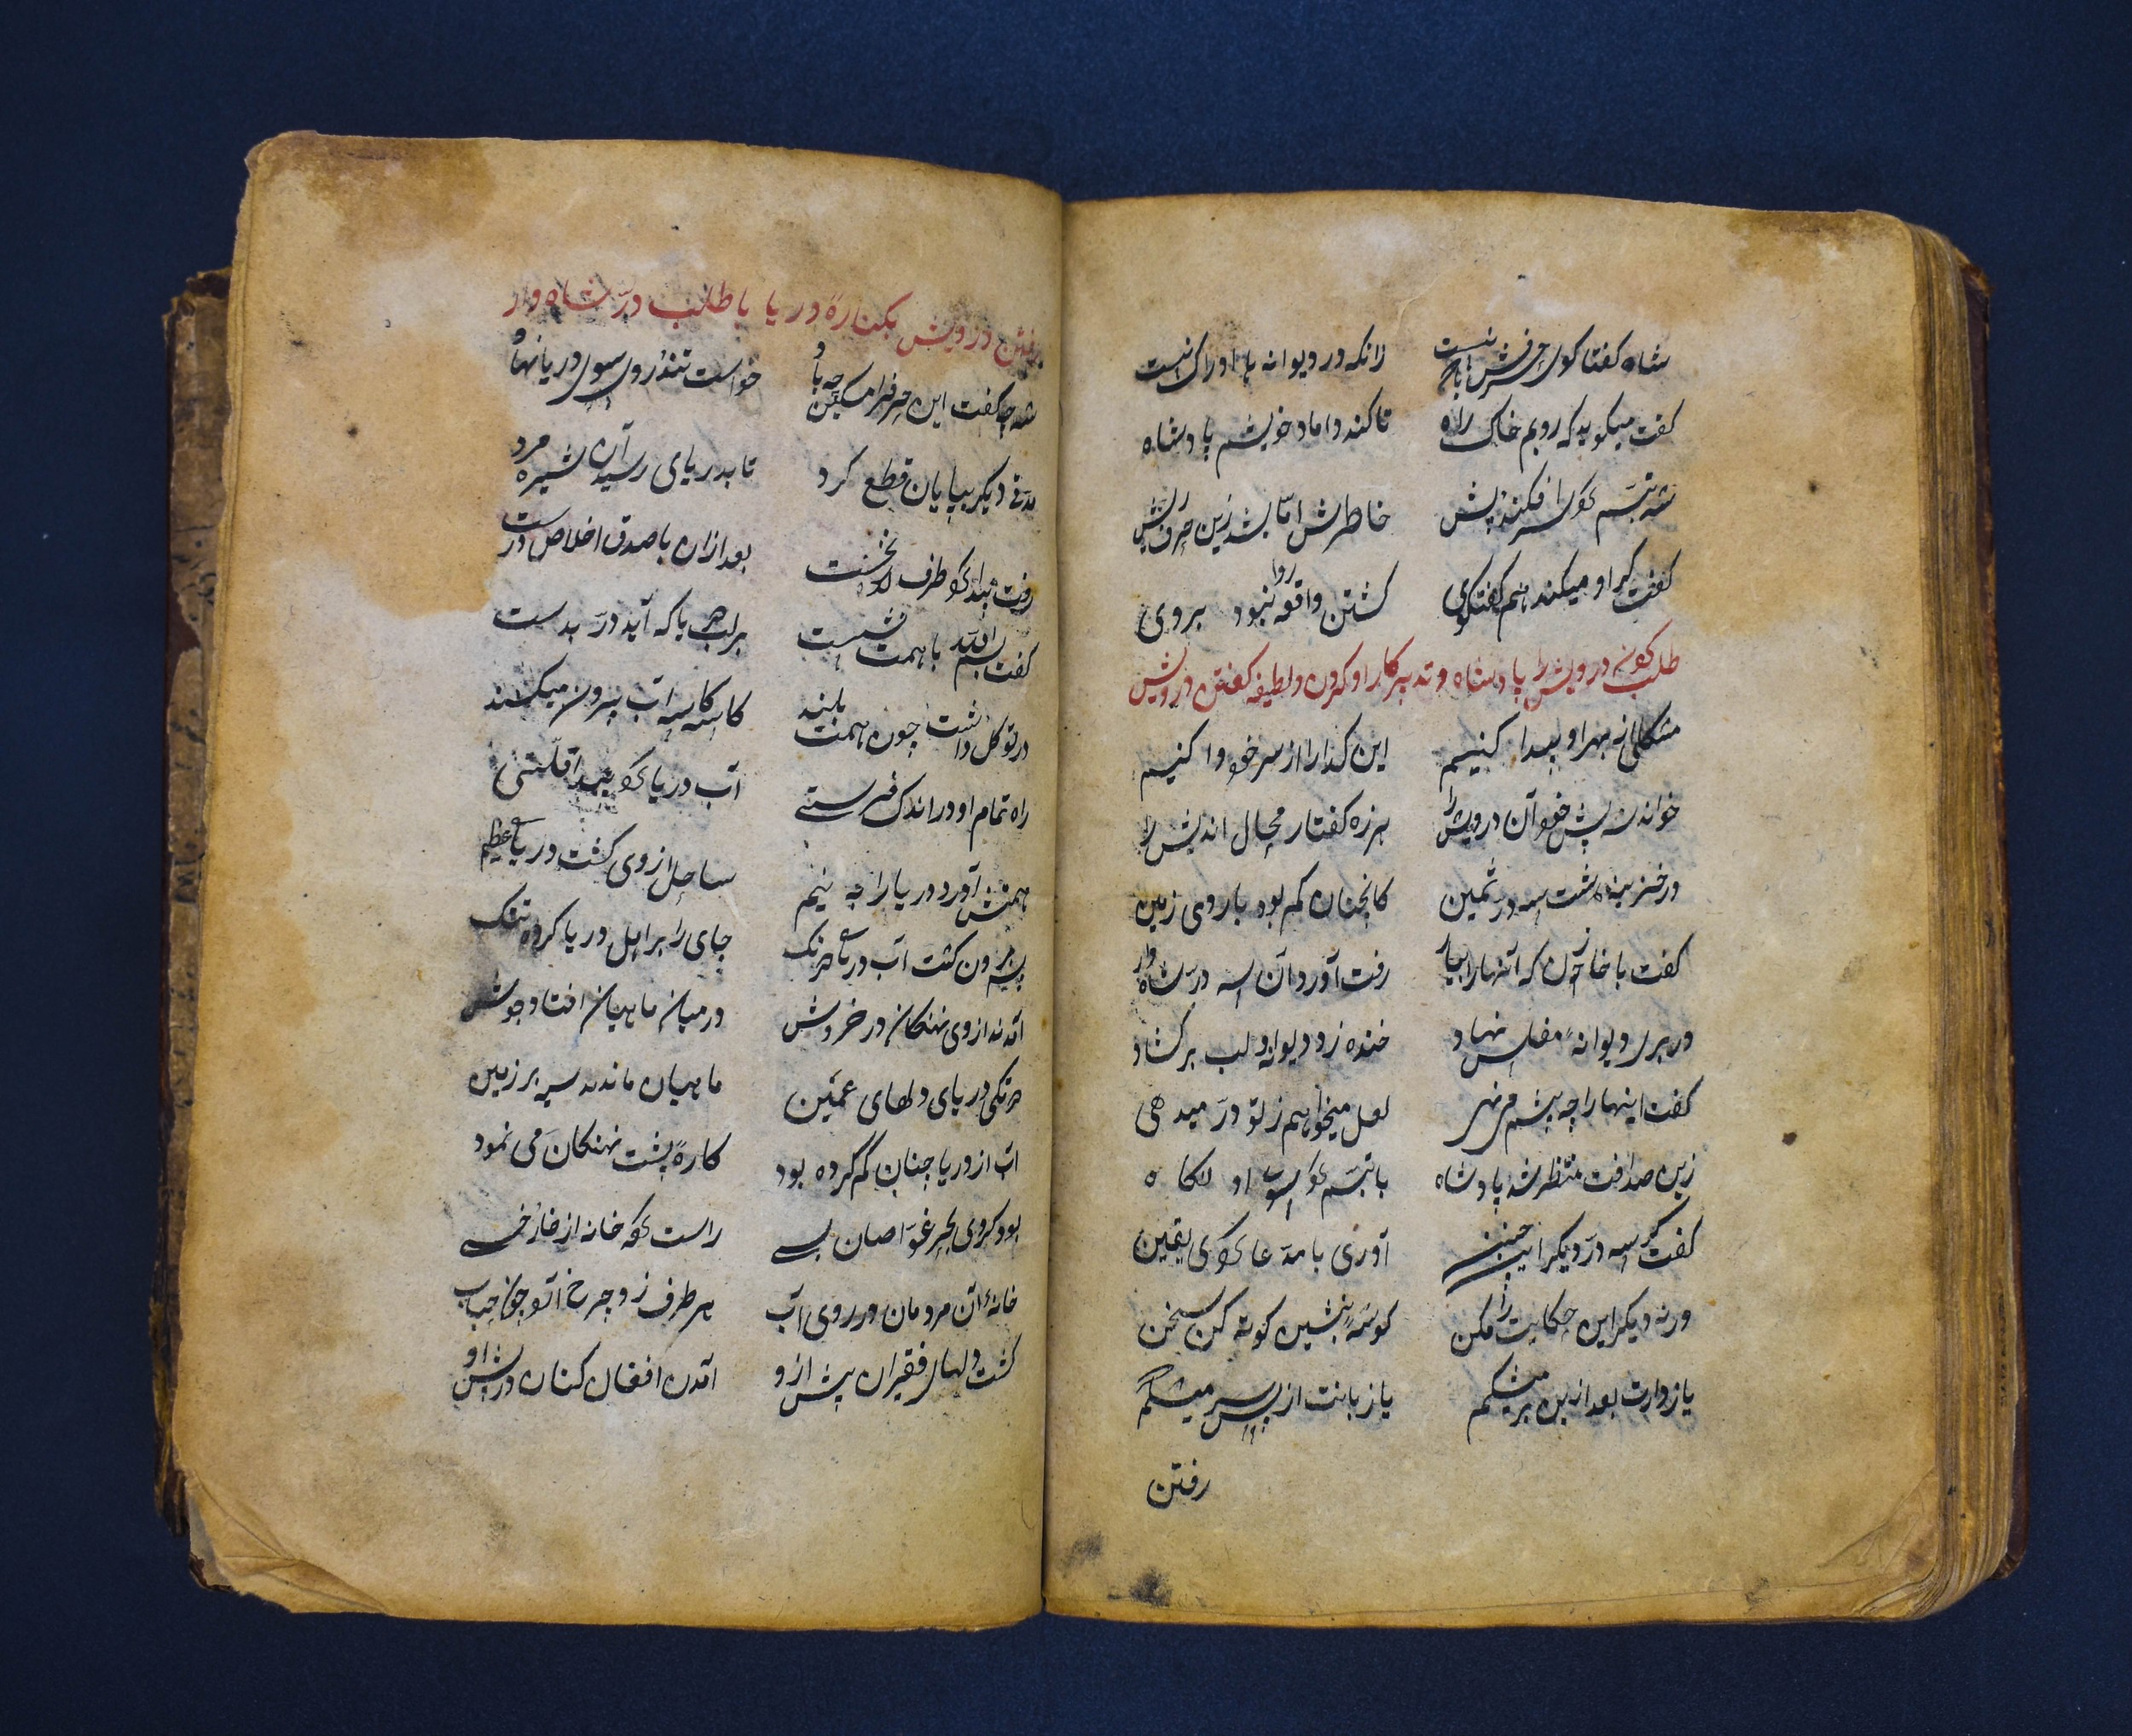 شاه کفتا کوی حرفش باک نیست زانکه در دیوانه‌ها ادراک نیست
کفت میکوید که روبم خاک راه تا کند داماد خویشم پادشاه
شه تبسم کرد سر افکند پیش خاطرش اما بشد زین حرف ریش
کفت کر او میکند هم کفتکوی کشتن واقعه نبود روا بروی
طلب کردن درویش را پادشاه و تدبیر کار او کردن و لطیفه کفتن درویش
مشکلی از بهر او پیدا کنیم این کدا را از سر خود وا کنیم
خواند شه پیش خود آن درویش را هرزه کفتار محال اندیش را
در خزینه داشت سه در ثمین کانچنان کم بود با روی زمین
کفت با خازن که آنها را بیار رفت آورد آن سه در شاه وار
در بر دیوانهٔ مفلس نهاد خنده زد دیوانه و لب برکشاد
کفت اینها را چه پیشم می نهی لعل میخواهم ز تو در میدهی
زین صدا رفت منتظر شد پادشاه با تبسم کرد سوی او نکاه
کفت کر سه در دیکر این چنین آوری با مدعا کردی یقین
ورنه دیکر این حکایت را مکن کوشهٔ بنشین کوته کن سخن
یا ز دارت بعد ازین بر میکشم یا زبانت از پس سر میکشم
رفتن
رفتن درویش بکنارهٔ دریا با طلب در شاه وار
شه چو کفت این حرفرا مسکین چه باد خواست تند روی سوی دریا نهاد
مدتی دیکر بیابان قطع کرد تا بدریای رسید آن شیره مرد
رفت پیدا کرد طرف لا نخست بعد ازان با صدق اخلاص درست
کفت بسم الله با همت نشست بر لب دریا که آید در بدست
در توکل داشت چون همت بلند کاسه کاسه آب بیرون میکشند
راه تمام او در اندک فرستی آب دریا کرد پیدا قلتی
همتش آورد دریا را چه نیم ساحل از وی کشت دریای عظیم
بیرون کشت آب دریای درنک جای را بر اهل دریا کرده تنک
آمدند از وی نهنکان در خروش در میان ماهیان افتاد جوش
در تکی دریای دلهای عمین ماهیان ماندند سر بر زمین
آب از دریا چنان کم کرده بود کارهٔ پشت نهنکان می نمود
بود کردی بحر غواصان بسی راست کرده خانه از خار خسی
خانهٔ آن مردمان در روی آب هر طرف زد چرخ آتو چون حباب
کشت دلهای فقیران پیش ازو آمدن افغان کنان در پیش او